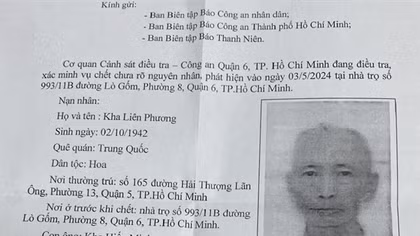 Kính gửi:
- Ban Biên tập Báo Công an nhân dân;
- Ban Biên tập Báo Công an Thành phố Hồ Chí Minh;
- Ban Biên tập Báo Thanh Niên.
Cơ quan Cảnh sát điều tra – Công an Quận 6, TP. Hồ Chí Minh đang điều tra,
xác minh vụ chết chưa rõ nguyên nhân, phát hiện vào ngày 03/5/2024 tại nhà trọ số
993/11B đường Lò Gốm, Phường 8, Quận 6, TP.Hồ Chí Minh.
Nạn nhân:
Họ và tên : Kha Liên Phương
Sinh ngày: 02/10/1942
Quê quán: Trung Quốc
Dân tộc: Hoa
Nơi thường trú: số 165 đường Hải Thượng Lãn
Ông, Phường 13, Quận 5, TP.Hồ Chí Minh
Nơi ở trước khi chết: nhà trọ số 993/11B đường
Lò Gốm, Phường 8, Quận 6, TP.Hồ Chí Minh.